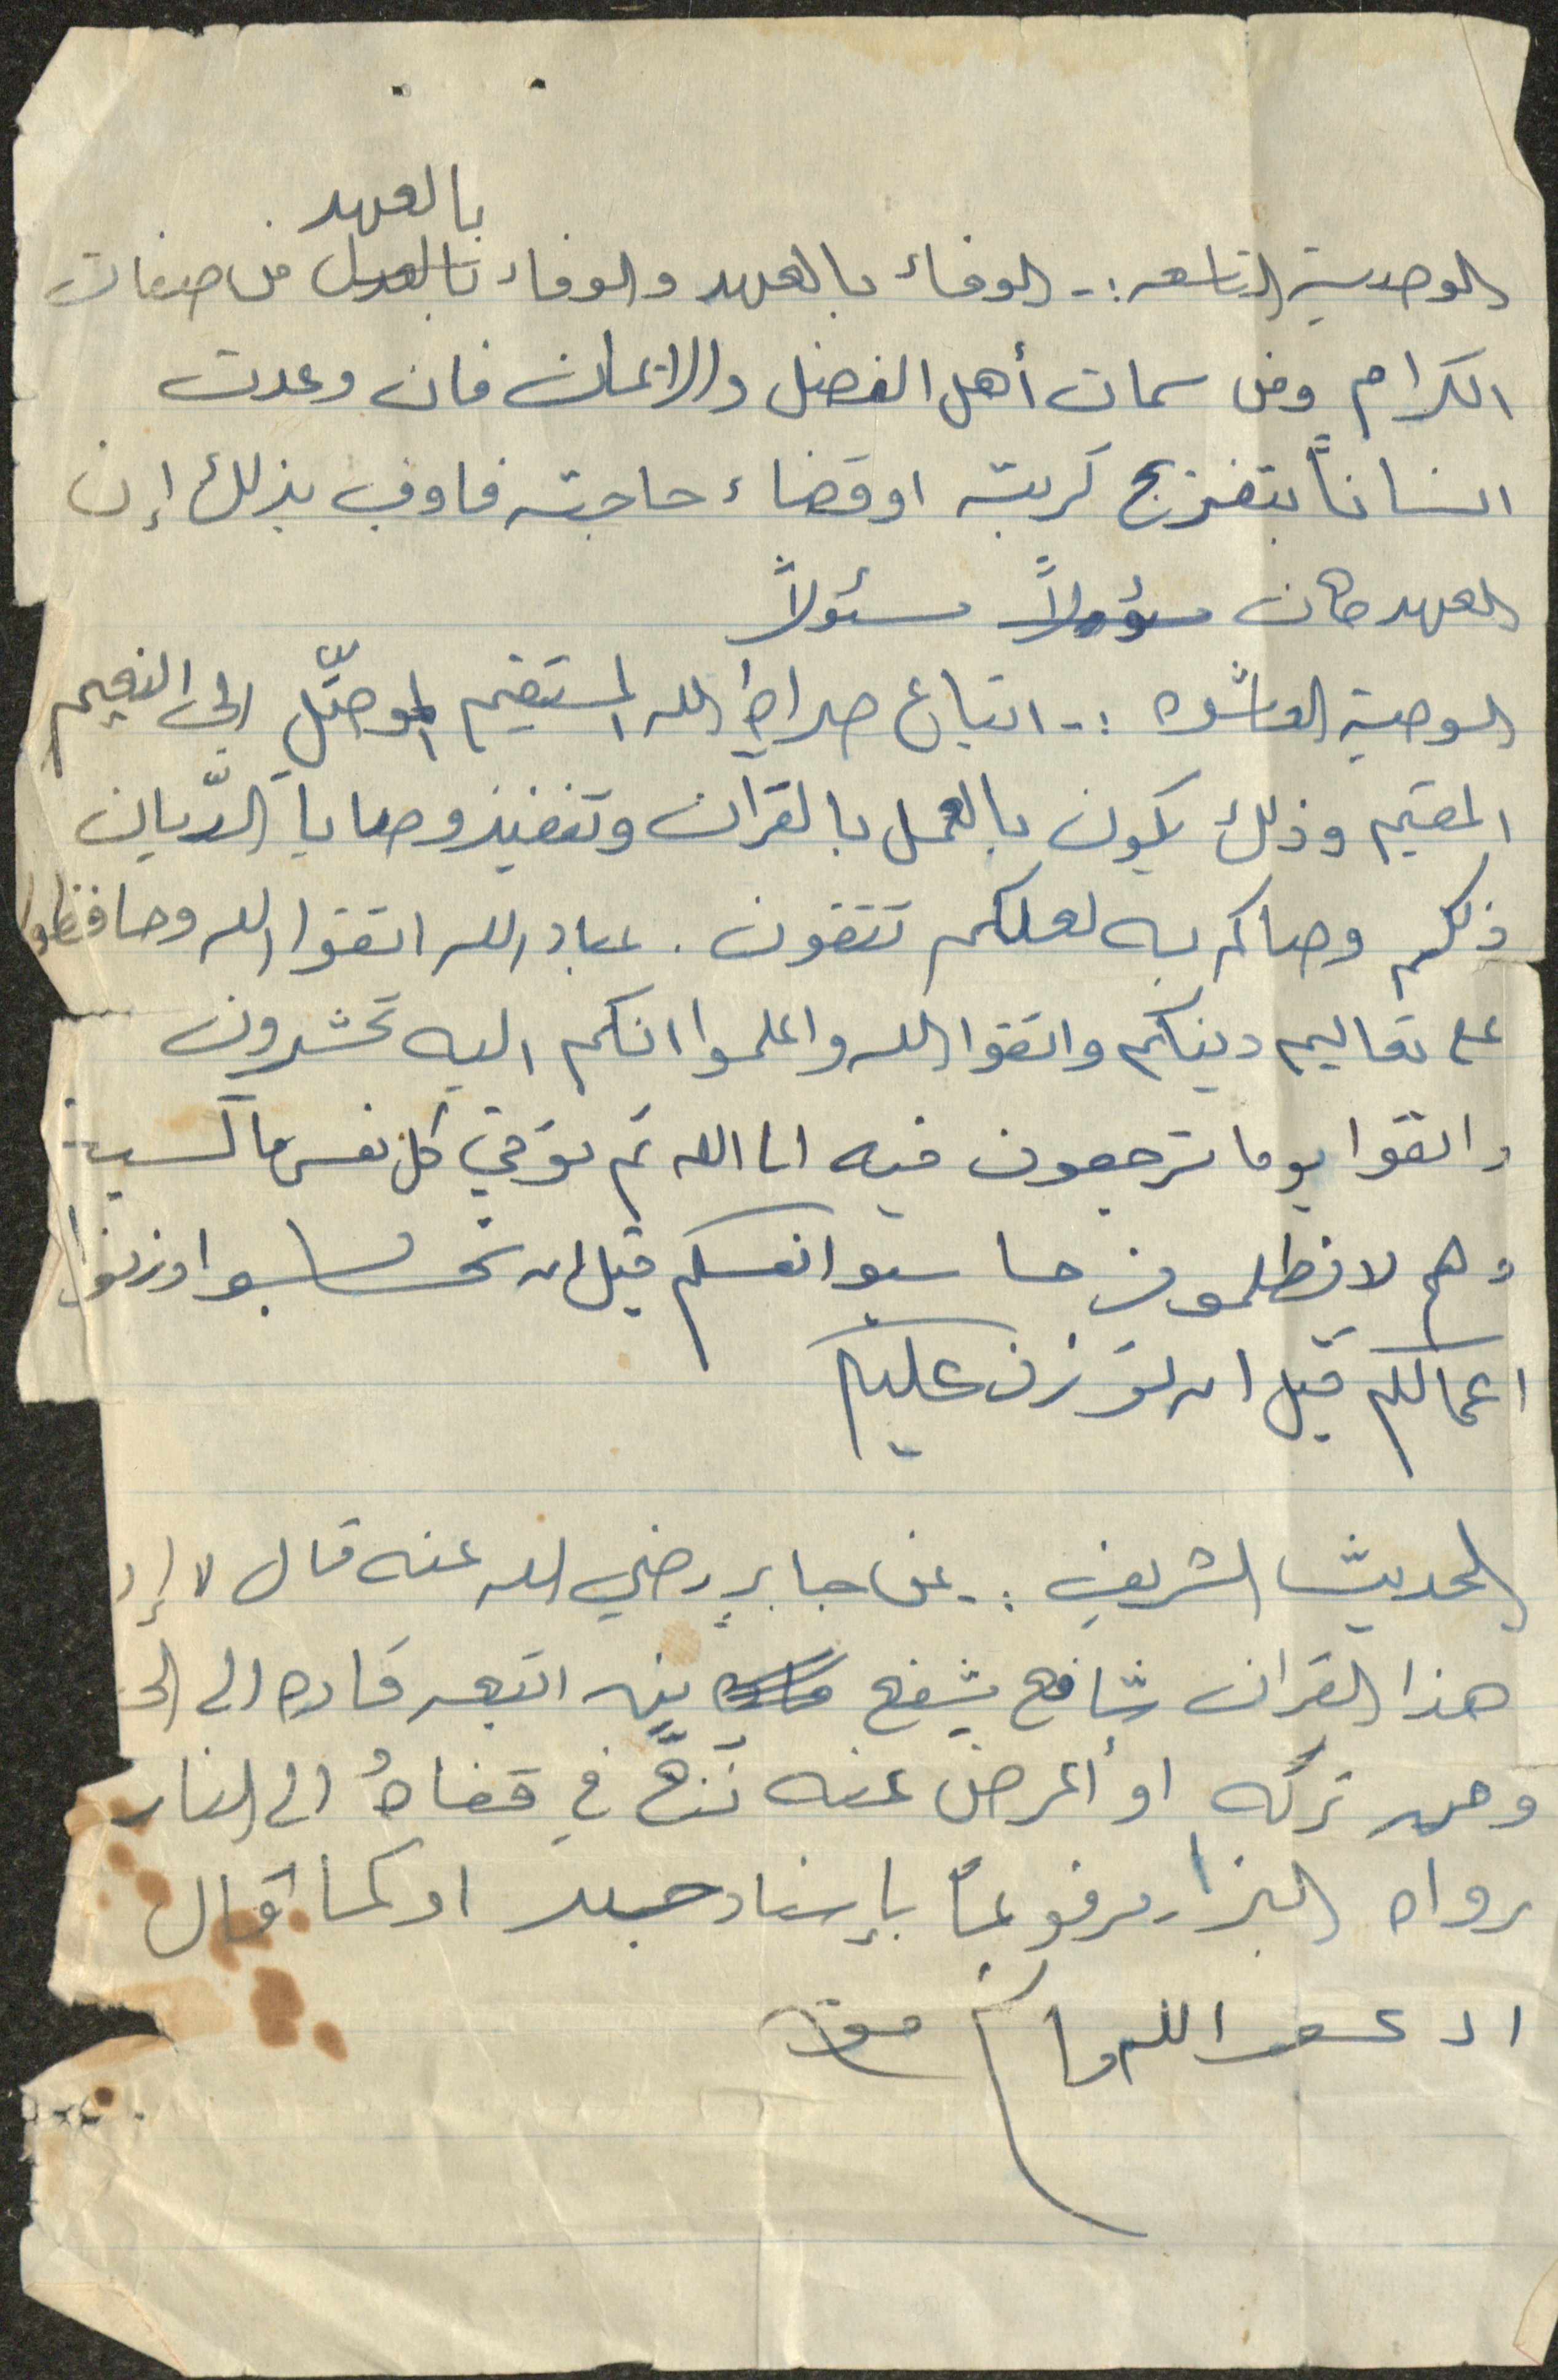 بالعهد
الوصية التاسعه :- الوفاء بالعهد والوفاء بالعدل من صفات
الكرام ومن سمات أهل الفضل والايمان فان وعدت
انساناً بتفريج كربته او قضاء حاجته فاوف بذلك إن
العهد كان مسؤولاً مسئولاً
الوصية العاشره :- اتباع صراط الله المستقيم الموصّل الى النعيم
المقيم وذلك يكون بالعمل بالقرآن وتنفيذ وصايا الدّيان
ذلكم وصاكم به لعلكم تتقون . عباد الله اتقوا الله وحافظوا
على تعاليم دينكم واتقوا الله واعلموا انكم اليه تحشرون
واتقوا يوما ترجعون فيه الى الله ثم توفى كل نفس ما كسبت
وهم لا يظلمون حاسبوا انفسكم قبل ان تحاسبوا وزنوا
اعمالكم قبل ان توزن عليكم
الحديث الشريف :- عن جابرٍ رضي الله عنه قال
هذا القران شافع مشفع اتبعه قاده الى
ومن تركه او أعرض عنه زخّ في قفاهُ الى النار
رواه البزار مرفوعاً بإسناد جيد او كما قال
ادعوا الله